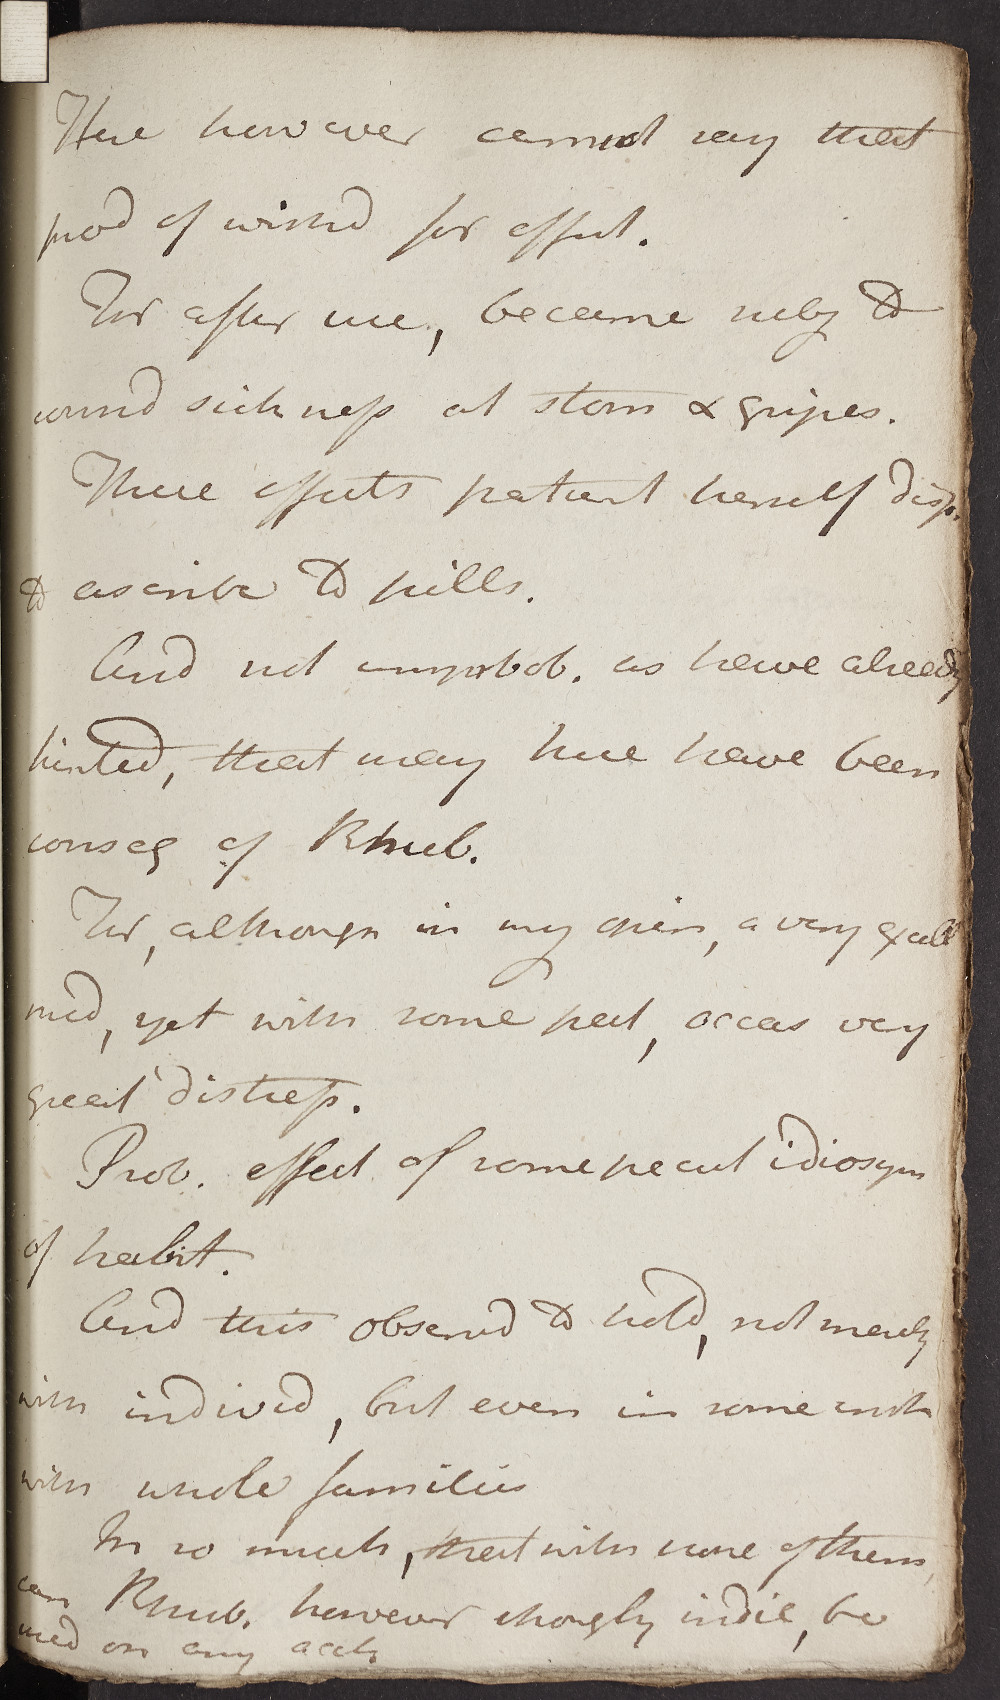 Here however cannot say that
prod of wishd for effect.
For after use, became subj to
consid sickness at stom & gripes.
These effects patient herself disp.
to ascribe to pills.
And not improbab. as have already
hinted, that may here have been
conseq of Rhub.
For, although in my opin, a very excell
med, yet with some pat, occas very
great distress.
Prob. effect of some pecul idiosyn
of habit.
And this observd to hold, not merely
with individ, but even in some inst
with whole families
In so much, that with none of them,
can Rhub. however strongly indic, be
used on any acct.